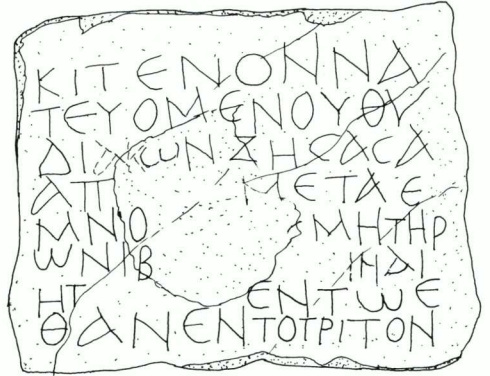 ΚΙΤΕΝΟΝΝΑ
ΤΕΥΟΜΕΝΟΥΘΥ
ΔΙ ωΝΖΗϹΑϹΑ
ΑΠ ΜΕΤΑΕ
ΜΝΟ ΜΗΤΗΡ
ωΝΙΒ
ΗΤ ΕΝΤωΕ
ΘΑΝΕΝΤΟΤΡΙΤΟΝ